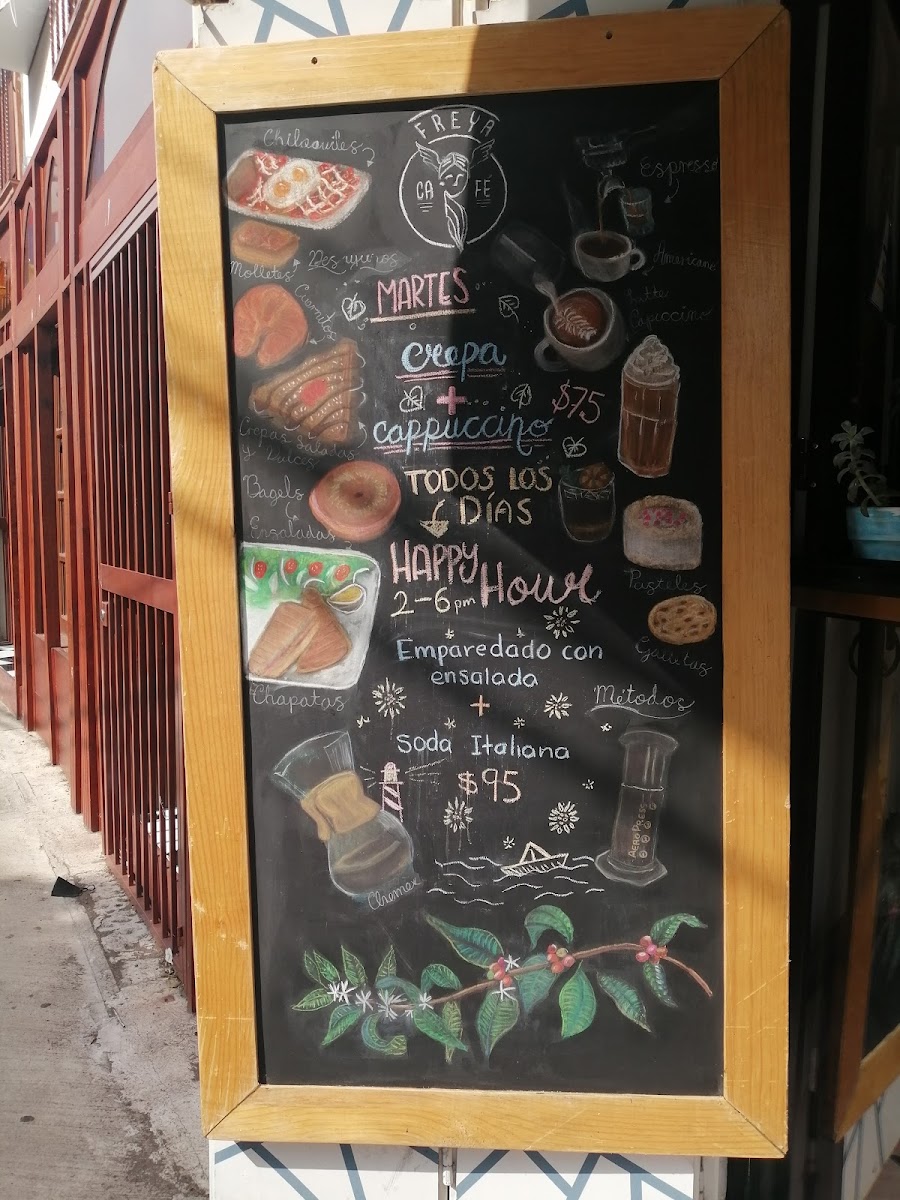 FREYA
CA FÉ
Chilaquiles
Molletes
Desayunos
Cuernitos
Crepas Saladas
y Dulces
Bagels
Ensaladas
Chapatas
MARTES
crepa
+
cappuccino
$75
TODOS LOS
DÍAS
HAPPY
HOUR
2-6pm
Emparedado con
ensalada
+
Soda Italiana
$95
Espresso
Americano
Latte
Capuccino
Pasteles
Galletas
Métodos
AEROPRESS
Chemex